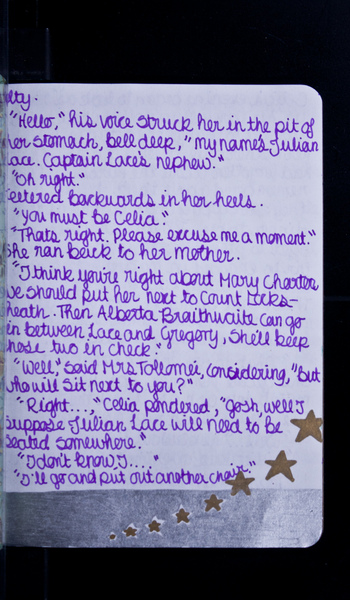 ulty.
"Hello," his voice struck her in the pit of
her stomach, bell deep, "my name's Julian
Lace. Captain Lace's nephew."
"Oh right."
teetered backwards in her heels.
"You must be Celia."
"Thats right. Please excuse me a moment."
She ran back to her mother.
"I think you're right about Mary Chaxter
we should put her next to Count Icks-
heath. Then Alberta Braithwaite can go
in between Lace and Gregory, she'll keep
those two in check."
"Well," said Mrs Tollomei, considering, "but
who will sit next to you?"
"Right...," Celia pondered, "Gosh, well I
suppose Julian Lace will need to be
seated somewhere."
"I don't know I...."
"I'll go and put out another chair."